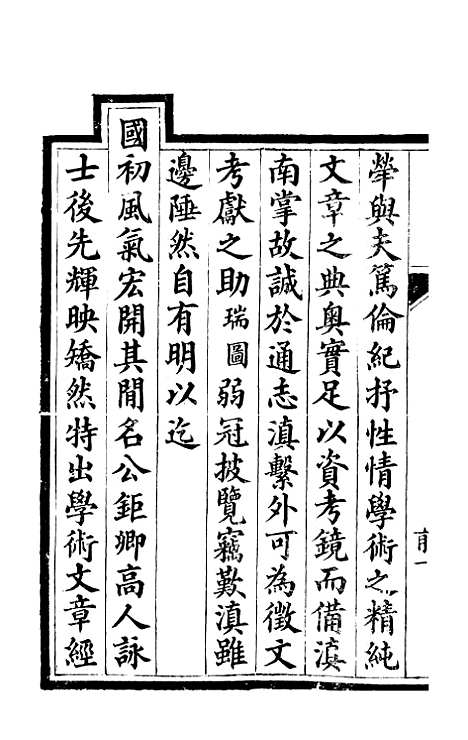 犖與夫篤倫紀抒性情學術之精純
文章之典奧實足以資考鏡而備滇
南掌故誠於通志滇繫外可為徵文
考獻之助瑞圖弱冠披覽竊歎滇雖
邊陲然自有明以迄
國初風氣宏開其閒名公鉅卿高人詠
士後先輝映矯然特出學術文章經